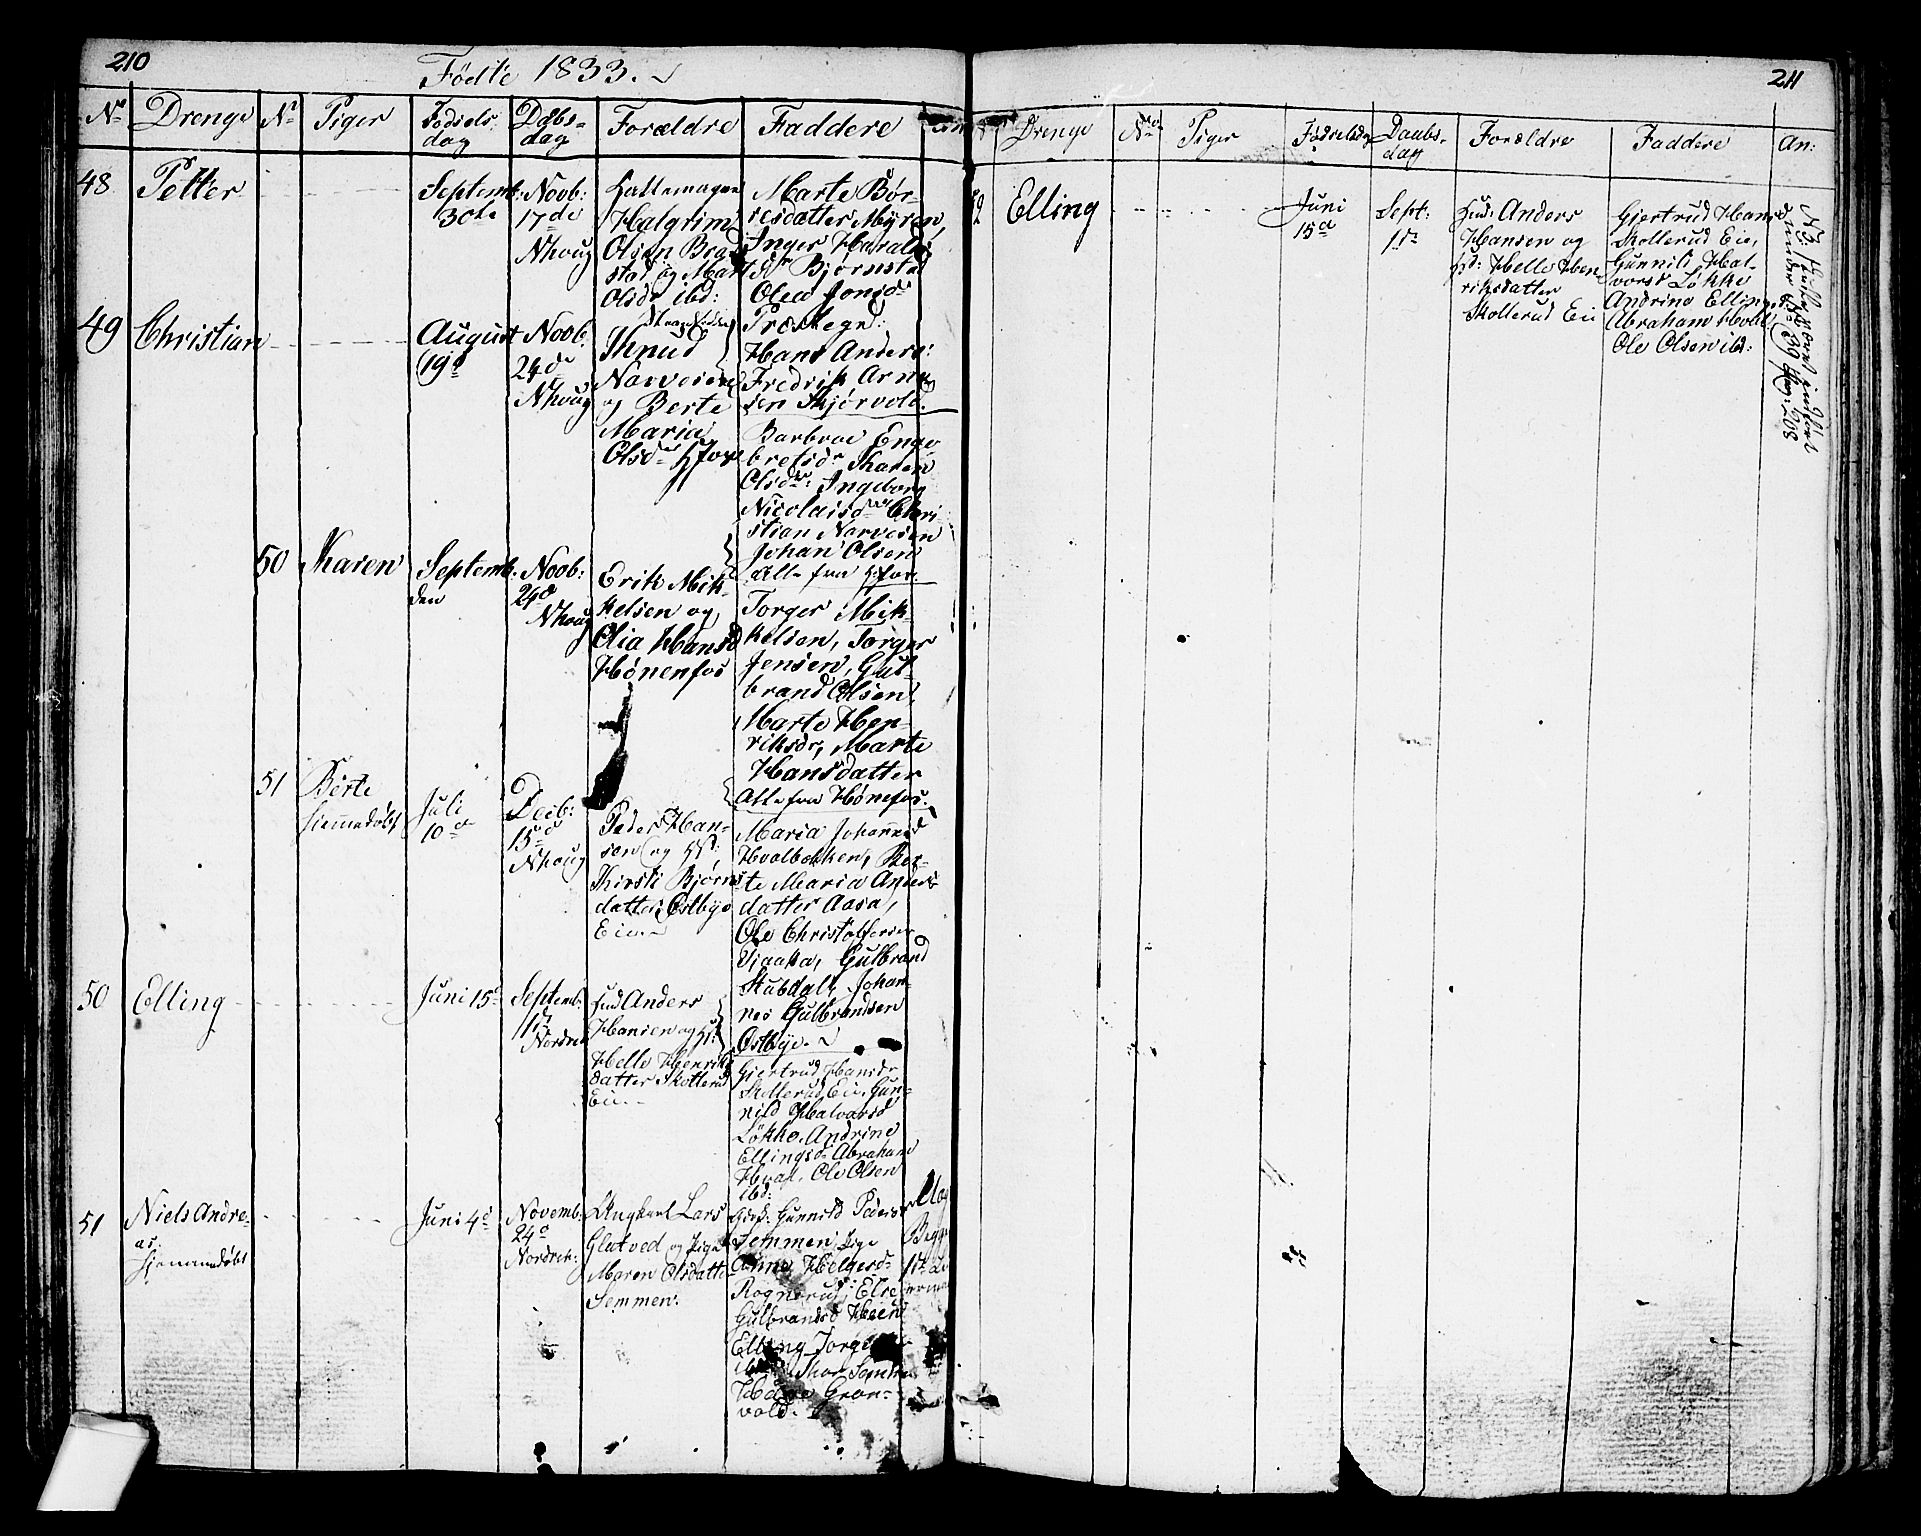 210
Fødte 1833.
No Drenge No Piger Fødsels dag Daabs= dag Forældre Faddere
48 Petter
Septemb:
30te
Novb:
17de
Nhoug
Halgrim
Olsen
stad og
Olsdr ibd:
Marte Bør-
resdatter Myren,
Inger Haralds
dr Bjørnstad
Olea Jonsd
Præstegd:
49 Christian
August
19d
Novb.
24de
Nhoug
Knud
Narvesen
og Berte
Maria
Olsdr Hfos
Hans Anders:
Fredrik Arne
sen Skjørvold.
Barbroe Enge
bretsdr Karen
Olsdr: Ingeborg
Nicolaisdr Chri
stian Narvesen
Johan Olsen
Alle fra Hfos.
50 Karen
Septemb:
den
Novb:
24d
Nhoug
Erik Mik-
kelsen og
Olia Hansd
Hønenfos
Torger Mik
kelsen, Torger
Jensen, Gul
brand Olsen,
Marte Hen-
riksdr, Marte
Hansdatter
Alle fra Hønefos.
51 Berte
hjemmedøbt
Juli
10d
Decb:
15d
Nhoug
Peder Han-
sen og
Kirsti Bjørns
datter Østbye
Eie.
Maria Johannesd
Hvalbakken, Ber-
te Maria Anders
datter Aasa,
Ole Christofersen
Gulbrand
Stubdal, Johan-
nes Gulbrandsen
Østbye.
50 Elling
Juni 15d
Septemb.
1ste
Nordrek
Anders
Hansen og
Helle Henriks
datter Skollerud
Eie.
Giertrud Hansdr
Skollerud Eie, Gun-
nild Halvorsd
Løkke, Andrine
Ellingsdr Abraham
Hval, Ole Olsen
ibd:
51 Niels Andre-
as,
hjemmedøbt
Juni 4d
Novemb:
24d
Nordrek:
Ungkarl Lars
Glatved og Pige
Maren Olsdatter
Semmen.
Gunnild Peders
Semmen, Pige
Anne Helgesd
Rognerud, Else
Gulbrandsd Heen
Elling
Semmen
Grøn-
vold.
211
Drenge No Piger Fødselsdag Daabs-dag Forældre Faddere An:
Elling
Juni
15d
Sept:
1ste
Anders
Hansen og
Helle Hen
riksdatter
Skollerud Eie
Gjertrud Hansd
Skollerud Eie,
Gunnild Hal-
vorsd Løkke
Andrine Ellingsd
Abraham Hval
Ole Olsen ibd: